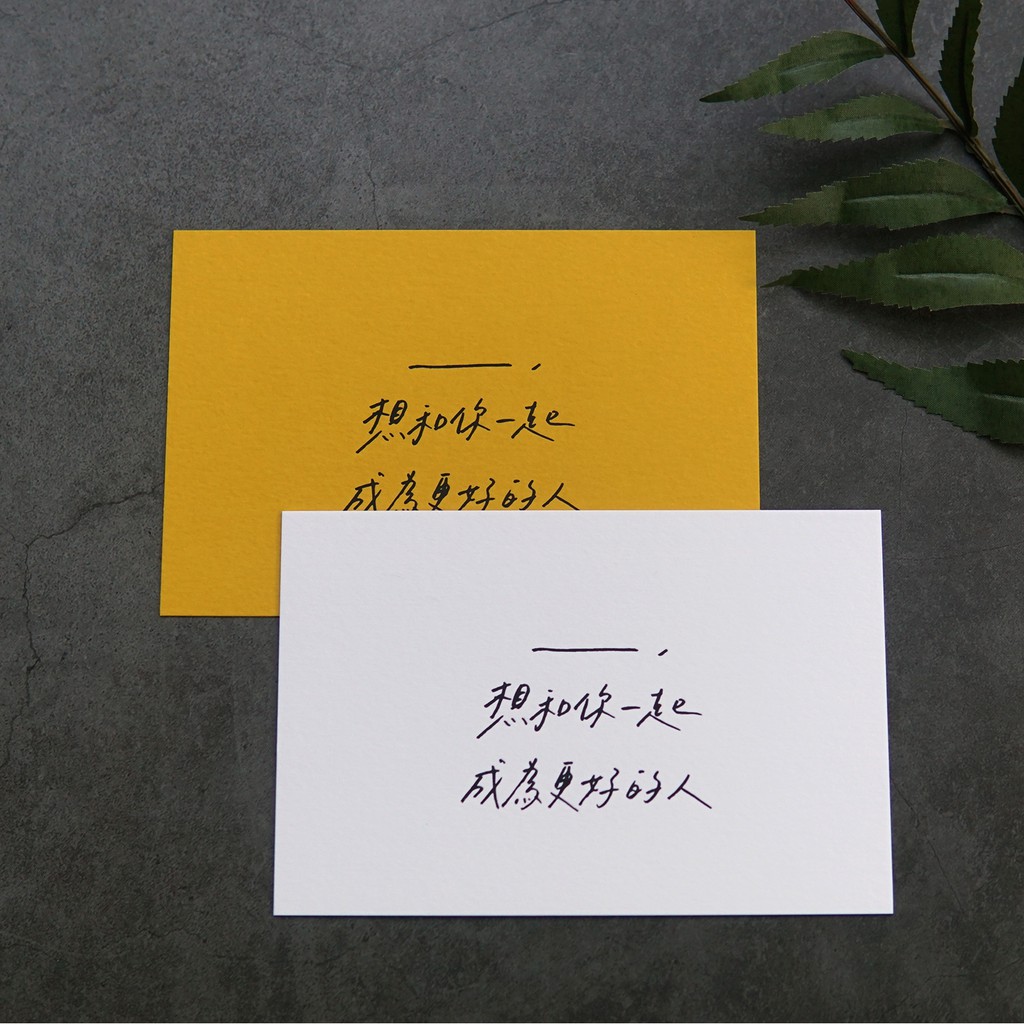 ———，
想和你一起
成為更好的人
———，
想和你一起
成為更好的人